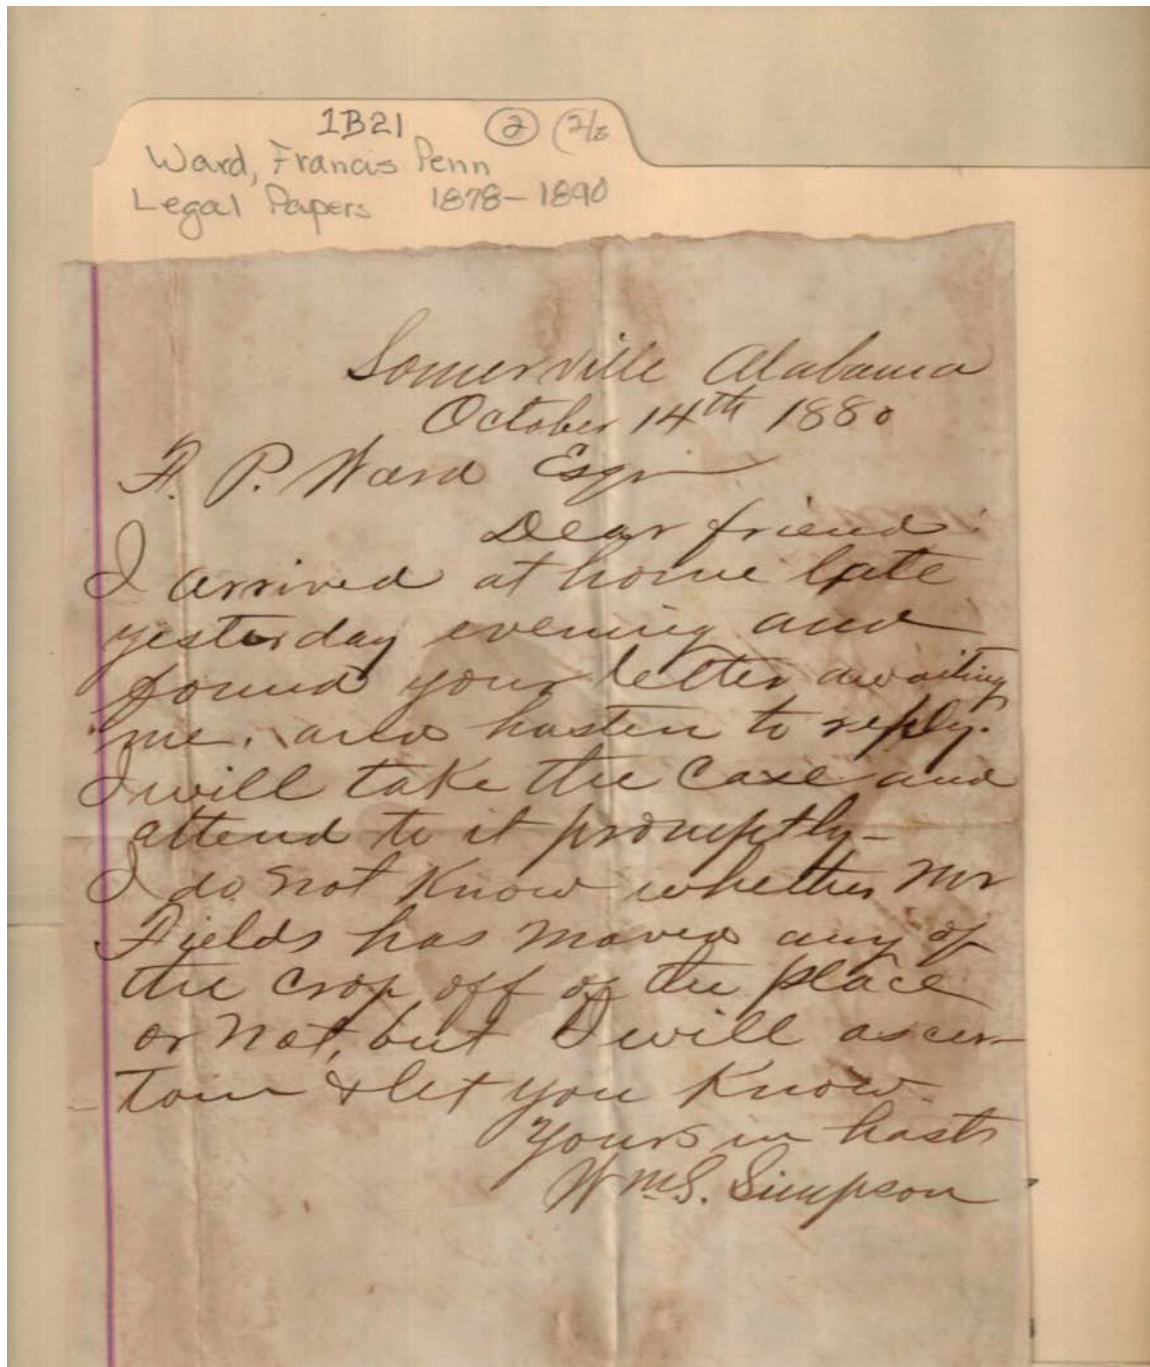 1B21 2 (2/3
Ward, Francis Penn
Legal Papers 1878-1890
Somerville Alabama
October 14th 1880
F. P. Ward Esqr
Dear friend:
I arrived at home late
yesterday evening and
found your letter awaiting
me. and hasten to reply.
I will take the case and
attend to it promptly-
I do not know whether Mr
Fields has moved any of
the crop off of the place
or not, but I will ascer-
tain & let you know.
Yours in haste
Wm S. Simpson